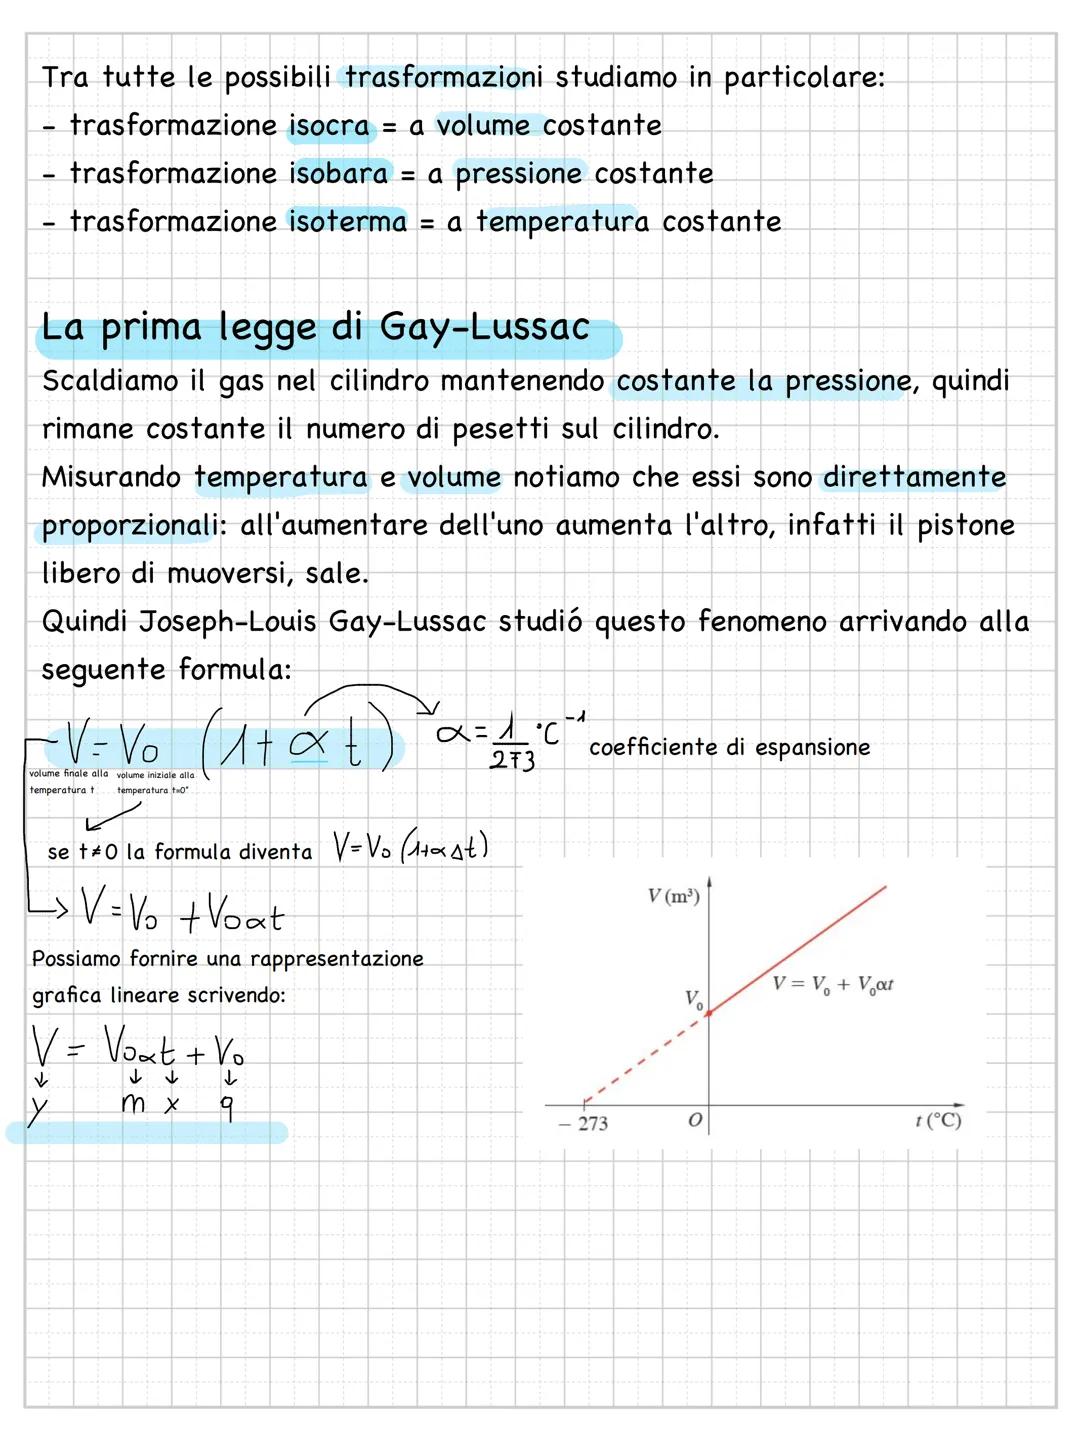 Tra tutte le possibili trasformazioni studiamo in particolare:
- trasformazione isocra = a volume costante
- trasformazione isobara = a pressione costante
- trasformazione isoterma = a temperatura costante
La prima legge di Gay-Lussac
Scaldiamo il gas nel cilindro mantenendo costante la pressione, quindi
rimane costante il numero di pesetti sul cilindro.
Misurando temperatura e volume notiamo che essi sono direttamente
proporzionali: all'aumentare dell'uno aumenta l'altro, infatti il pistone
libero di muoversi, sale.
Quindi Joseph-Louis Gay-Lussac studió questo fenomeno arrivando alla
seguente formula:
V = V₀ (1 + α t) α = 1/273 °C⁻¹ coefficiente di espansione
volume finale alla temperatura t
volume iniziale alla temperatura t=0°
se t≠0 la formula diventa V=V₀ (1+αΔt)
V = V₀ + V₀αt
Possiamo fornire una rappresentazione
grafica lineare scrivendo:
V = V₀αt + V₀
y m x q
V (m³)
V = V₀ + V₀αt
V₀
– 273 O t (°C)